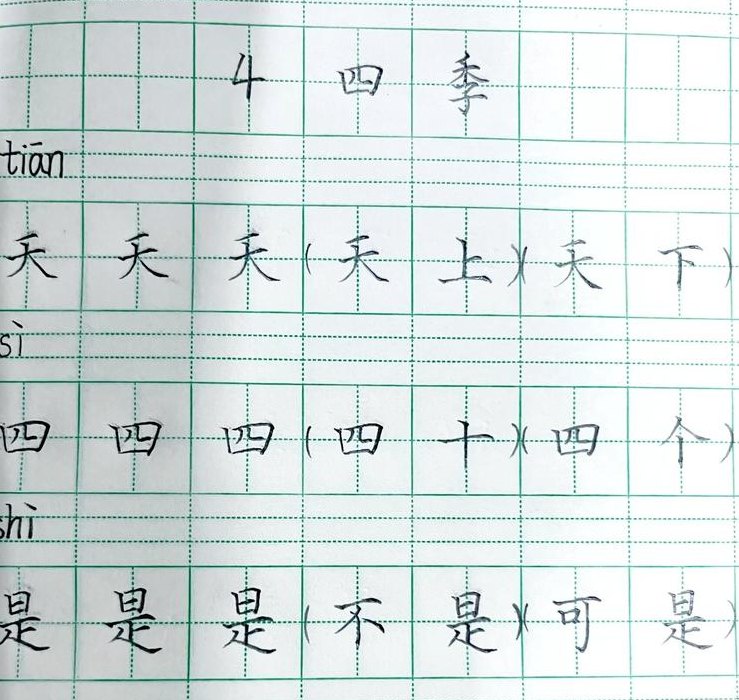 4 四季
tiān
天 天 天 (天上)(天下)
sì
四 四 四 (四十)(四个)
shì
是 是 是 (不是)(可是)